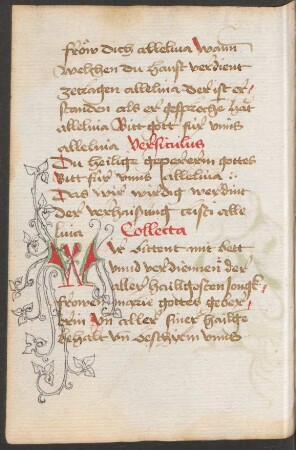 fröw dich alleluia wann
welchen du haust verdient
zetragen alleluia der ist er
standen als er gesprochē hāt
alleluia Bitt gott für vnns
alleluia Versiculus
Du heilige gepererin gottes
Bitt für vnns alleluia :
Das wir wirdig werdint
der verhaisung cristi alle
luia Collecta
Wir bittent mit bett
vnnd verdiennen der
aller hailigosten Jungk
frowen marie gottes geber
erin vn aller siner hailge
behalt vn beschirm vnns